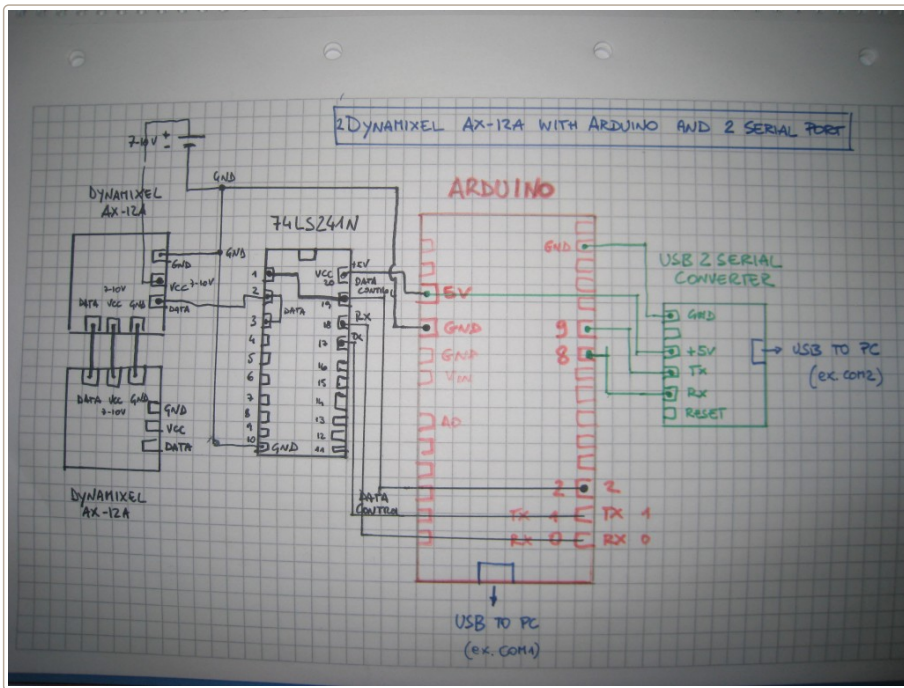 2 DYNAMIXEL AX-12A WITH ARDUINO AND 2 SERIAL PORT
7-10V + -
GND
DYNAMIXEL
AX-12A
GND
GND
VCC 7-10V
DATA
7-10V
DATA VCC GND
DATA VCC GND
7-10V
GND
VCC
DATA
DYNAMIXEL
AX-12A
74LS241N
1
2
3
4
5
6
7
8
9
10
GND
DATA
VCC
20
19
18
17
16
15
14
13
12
11
+5V
DATA
CONTROL
RX
TX
DATA
CONTROL
ARDUINO
5V
GND
GND
VIN
A0
GND
9
8
2 2
TX 1 TX 1
RX 0 RX 0
USB TO PC
(ex. COM1)
USB 2 SERIAL
CONVERTER
GND
+5V
TX
RX
RESET
USB TO PC
(ex. COM2)